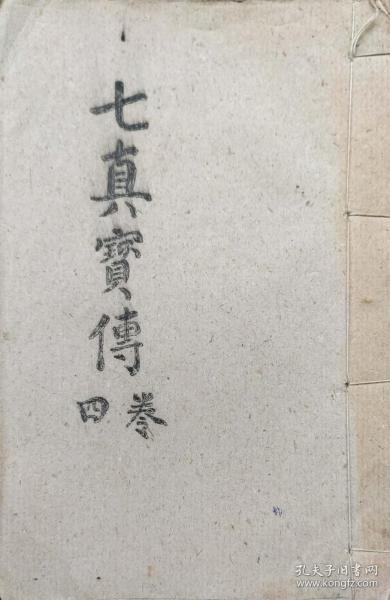 七真寶傳
卷四
孔夫子旧书网
www.kongfz.com